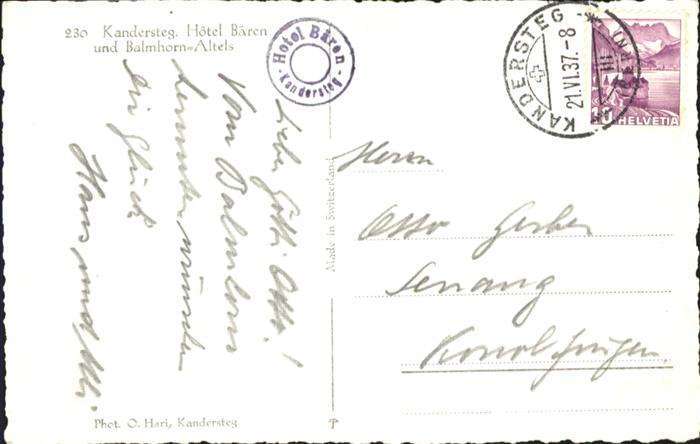 236 Kandersteg. Hôtel Bären
und Balmhorn-Altels
Hotel Bären
-Kandersteg-
KANDERSTEG
21.VI.37.-8
10 HELVETIA
Lieber Götti Otto!
Vom Balmhorn
herunter wünschen
Dir Glück
Hans und
Made in Switzerland
Herrn
Otto Gerber
Konolfingen
Phot. O. Hari, Kandersteg